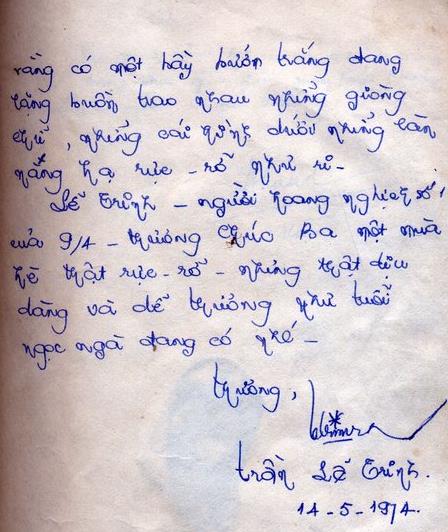 rằng có một bầy bướm trắng đang
lặng buồn trao nhau những giòng
chữ, những cái nhìn dưới những làn
nắng hạ rực - rỡ như ri -
Lế Trinh - người hoang nghịch số 1
của 9/4 - thương chúc Ba một mùa
hè thật rực - rỡ - nhưng thật dịu
dàng và dễ thương như tuổi
ngọc ngà đang có nhé -
thương,
trần Lế Trinh.
14-5-1974.